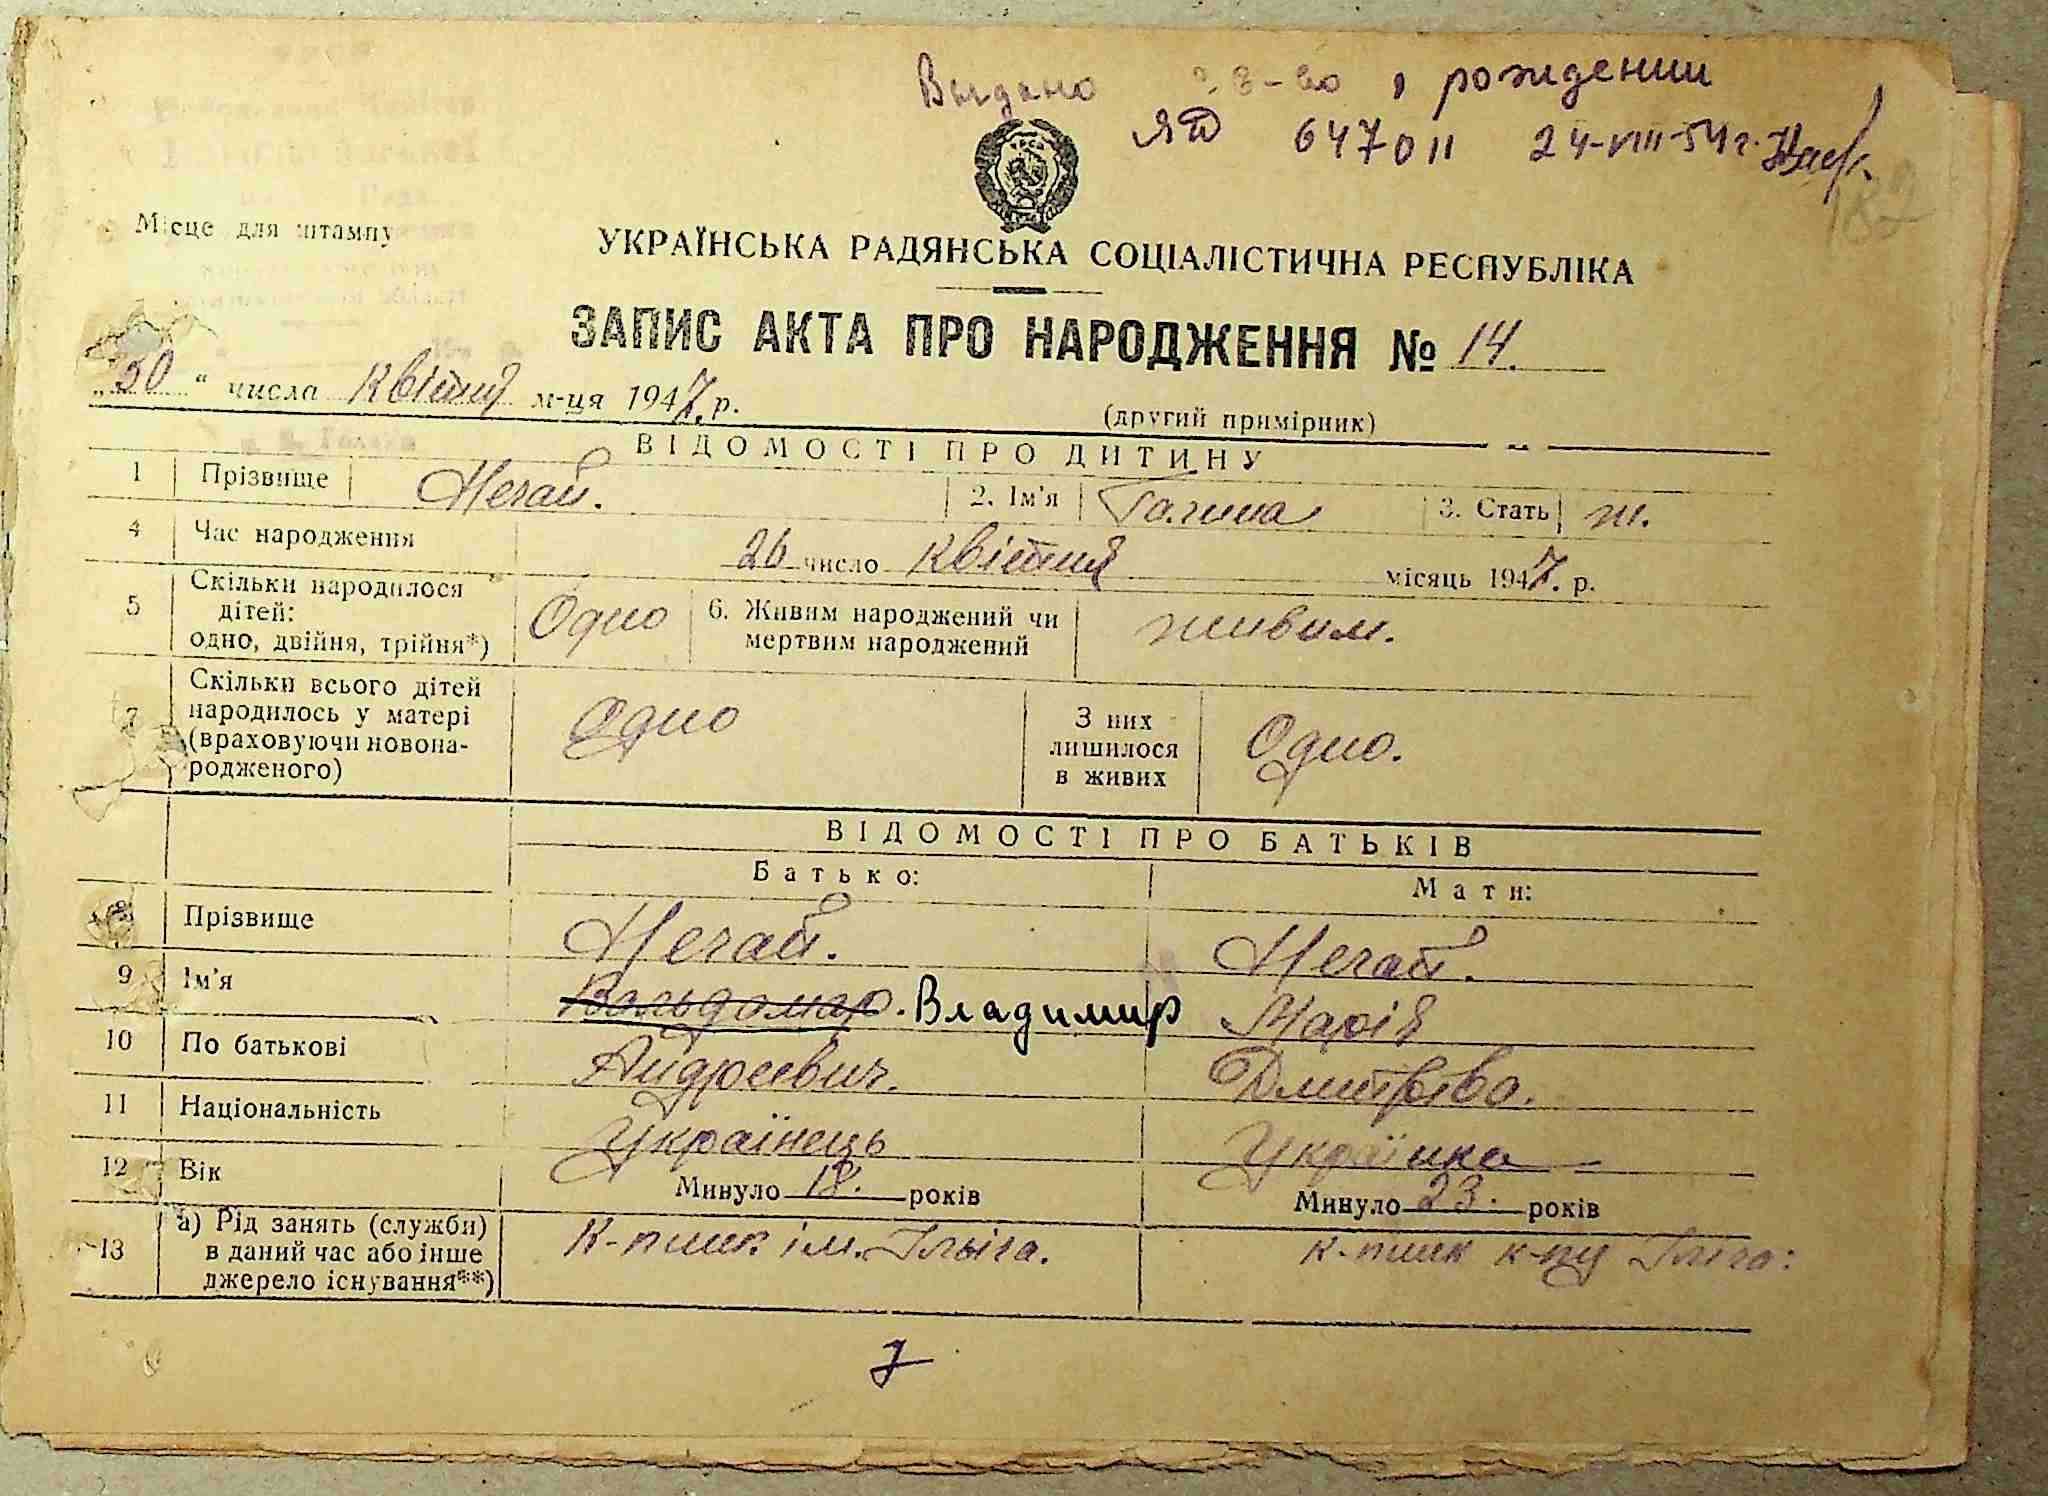 Выдано св-во о рождении
ЯД 647011 24-VIII-54 г.
182
Місце для штампу
УКРАЇНСЬКА РАДЯНСЬКА СОЦІАЛІСТИЧНА РЕСПУБЛІКА
ЗАПИС АКТА ПРО НАРОДЖЕННЯ № 14.
„30“ числа квітня м-ця 1947. р.
(другий примірник)
ВІДОМОСТІ ПРО ДИТИНУ
1 Прізвище Нечай. 2. Ім'я Галина 3. Стать ж.
4 Час народження 26 число квітня місяць 1947. р.
5 Скільки народилося дітей: одно, двійня, трійня*) Одно 6. Живим народжений чи мертвим народжений живим.
7 Скільки всього дітей народилось у матері (враховуючи новонародженого) Одно З них лишилося в живих Одно.
ВІДОМОСТІ ПРО БАТЬКІВ
Батько: Мати:
8 Прізвище Нечай. Нечай.
9 Ім'я Вольдомар. Владимир Марія
10 По батькові Андреевич. Дмитрівна.
11 Національність Українець Українка
12 Вік Минуло 18. років Минуло 23. років
13 а) Рід занять (служби) в даний час або інше джерело існування**) К-пник ім. Ілліча. к-пник к-пу Ілліча:
7